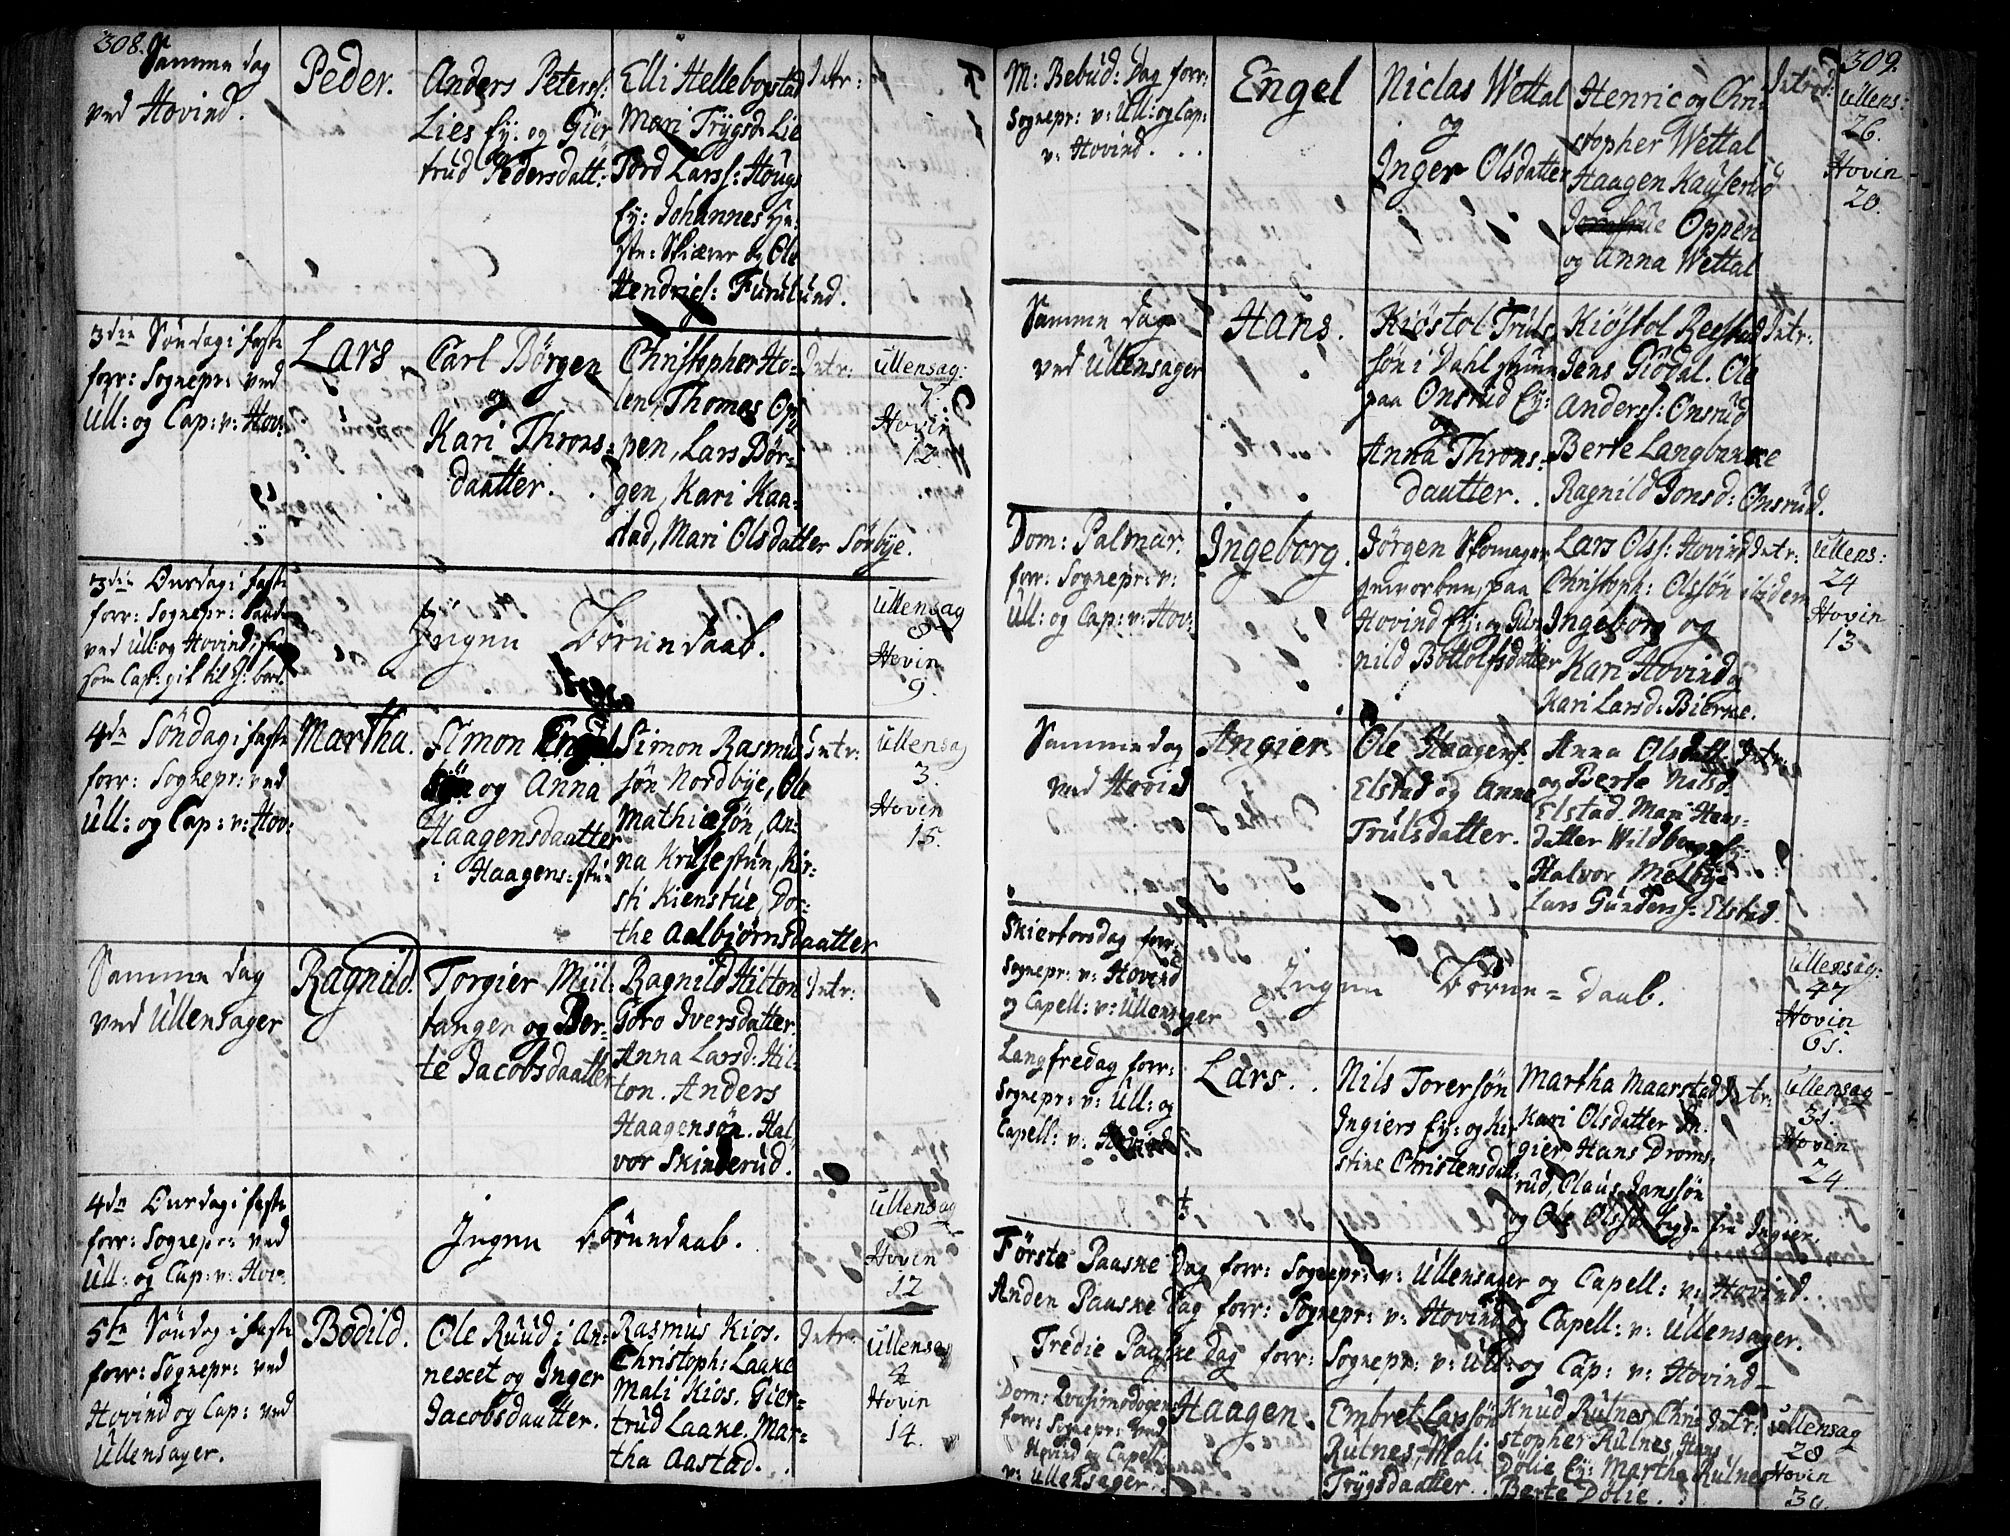 308.
Samme dag
ved Hovind.
Peder.
Anders Peterss:
Lies Ey: og Gier
trud Pedersdatt:
Elli Hellebogstad
Mari Trÿgsd. Lie
Tord Larss: Hougs
Ey: Johannes
Skiærer og Ole
Hendrichs: Furulund.
Intr:
3die Søndag i faste
forr: Sognepr: ved
Ull: og Cap: v: Hov:
Lars
Carl Börgen
og
Kari Throns=
daatter.
Christopher Ho=
len, Thomas Op=
pen, Lars Bör=
gen, Kari Kaa=
stad, Mari Olsdatter Sörbÿe.
Intr:
Ullensag:
7.
Hovin
12.
3die Onsdag i faste
forr: Sognepr:
ved Ull: og Hovind,
som Cap: gik til G: bord.
Ingen Börun daab.
Ullensag
8
Hovin
9.
4de Söndag i faste
forr: Sognepr: ved
Ull: og Cap: v: Hov:
Martha.
Simon Engel
sön og Anna
Haagensdaatter
i Haagens=stu
Simon Rasmus
sön Nordbÿe, Ole
Mathiæsön, An=
na Krusestun, Kir=
sti Kienstue, Dor=
the Aalbjörnsdaatter
Intr:
Ullensag
3.
Hovin
15.
Samme dag
ved Ullensager
Ragnild.
Torgier Mül:
tanger og Ber=
te Jacobsdaatter
Ragnild Hilton
Goro Iversdatter
Anna Larsd: Hil=
ton. Anders
Haagensön. Hal
vor Skinderud.
Intr:
4de Onsdag i faste
forr: Sognepr: ved
Ull: og Cap: v: Hov:
Ingen börundaab.
Ullensag
8
Hovin
12
5te Söndag i faste
forr: Sognepr: ved
Hovind og Cap: ved
Ullensager.
Bodild.
Ole Ruud i An:
nexet og Inger
Jacobsdaatter.
Rasmus Kios.
Christoph: Laake
Mali Kios. Gier=
trud Laake. Mar=
tha Aastad.
Intr:
Ullensag
2
Hovin
14.
309.
M: Bebud: Dag forr:
Sognepr: v: Ull: og Cap:
v: Hovind.
Engel
Niclas Wettal
og
Inger Olsdatter
Henric og Chri=
stopher Wettal
Haagen Kaÿserud
Oppen
og Anna Wettal
Introd:
Ullens:
26.
Hovin
20.
Samme dag
ved Ullensager
Hans.
Kiöstol Truls
sön i Dahl
paa Onsrud Ey:
og
Anna Throns=
dautter.
Kiöstol Reestad
Jens Giödal. Ole
Anderss: Onsrud
Berte Langbakke
Ragnild Jonsd: Onsrud.
Intr:
Dom: Palmar:
forr: Sognepr: v:
Ull: og Cap: v: Hov:
Ingeborg.
Jörgen Skomager
paa
Hovind Ey: og Gun
nild Bottolfsdatter
Lars Olss: Hovind
Christoph: Olssön ibidem
Ingeborg og
Kari Hovind og
Kari Larsd: Bierke.
Intr:
Ullens:
24
Hovin
13.
Samme dag
ved Hovind
Angier.
Ole Haagens.
Elstad og Anne
Trulsdatter.
Anna Olsdatt
og Berte Nilsd.
Elstad. Mari Hans=
datter Wildberg
Halvor Melbÿe
Lars Gunderss: Elstad.
Intr:
Skiertorsdag forr:
Sognepr: v: Hovind
og Capell: v: Ullensager
Ingen Börun=daab.
Ullensag:
47
Hovin
61.
Langfredag forr:
Sognepr: v: Ull: og
Capell: v: Hovind
Lars.
Nils Torersön
Ingiers Ey: og Kir
stine Christensdat:
Martha Maarstad
Kari Olsdatter In
gier Hans Droms:
rud, Olaus Janssön
og Ole Olssön Ingier.
Intr:
Ullensag
31.
Hovin
24.
Förste Paaske Dag forr: Sognepr: v: Ullensager og Capell: v: Hovind.
Anden Paaske dag forr: Sognepr: v: Hovind og Capell: v: Ullensager.
Tredie Paaske dag forr: Sognepr: v: Ull: og Cap: v: Hovind
Dom:
forr: Sognepr: ved
Hovind og Capell:
v: Ullensager.
Haagen.
Embret Larssön
Rulnes, Mali
Trÿgsdaatter.
Knud Rulnes, Chri
stopher Rulnes, Hans
Dölie Ey: Martha Rulnes
Berte Dölie.
Intr:
Ullensag
28
Hovin
30.